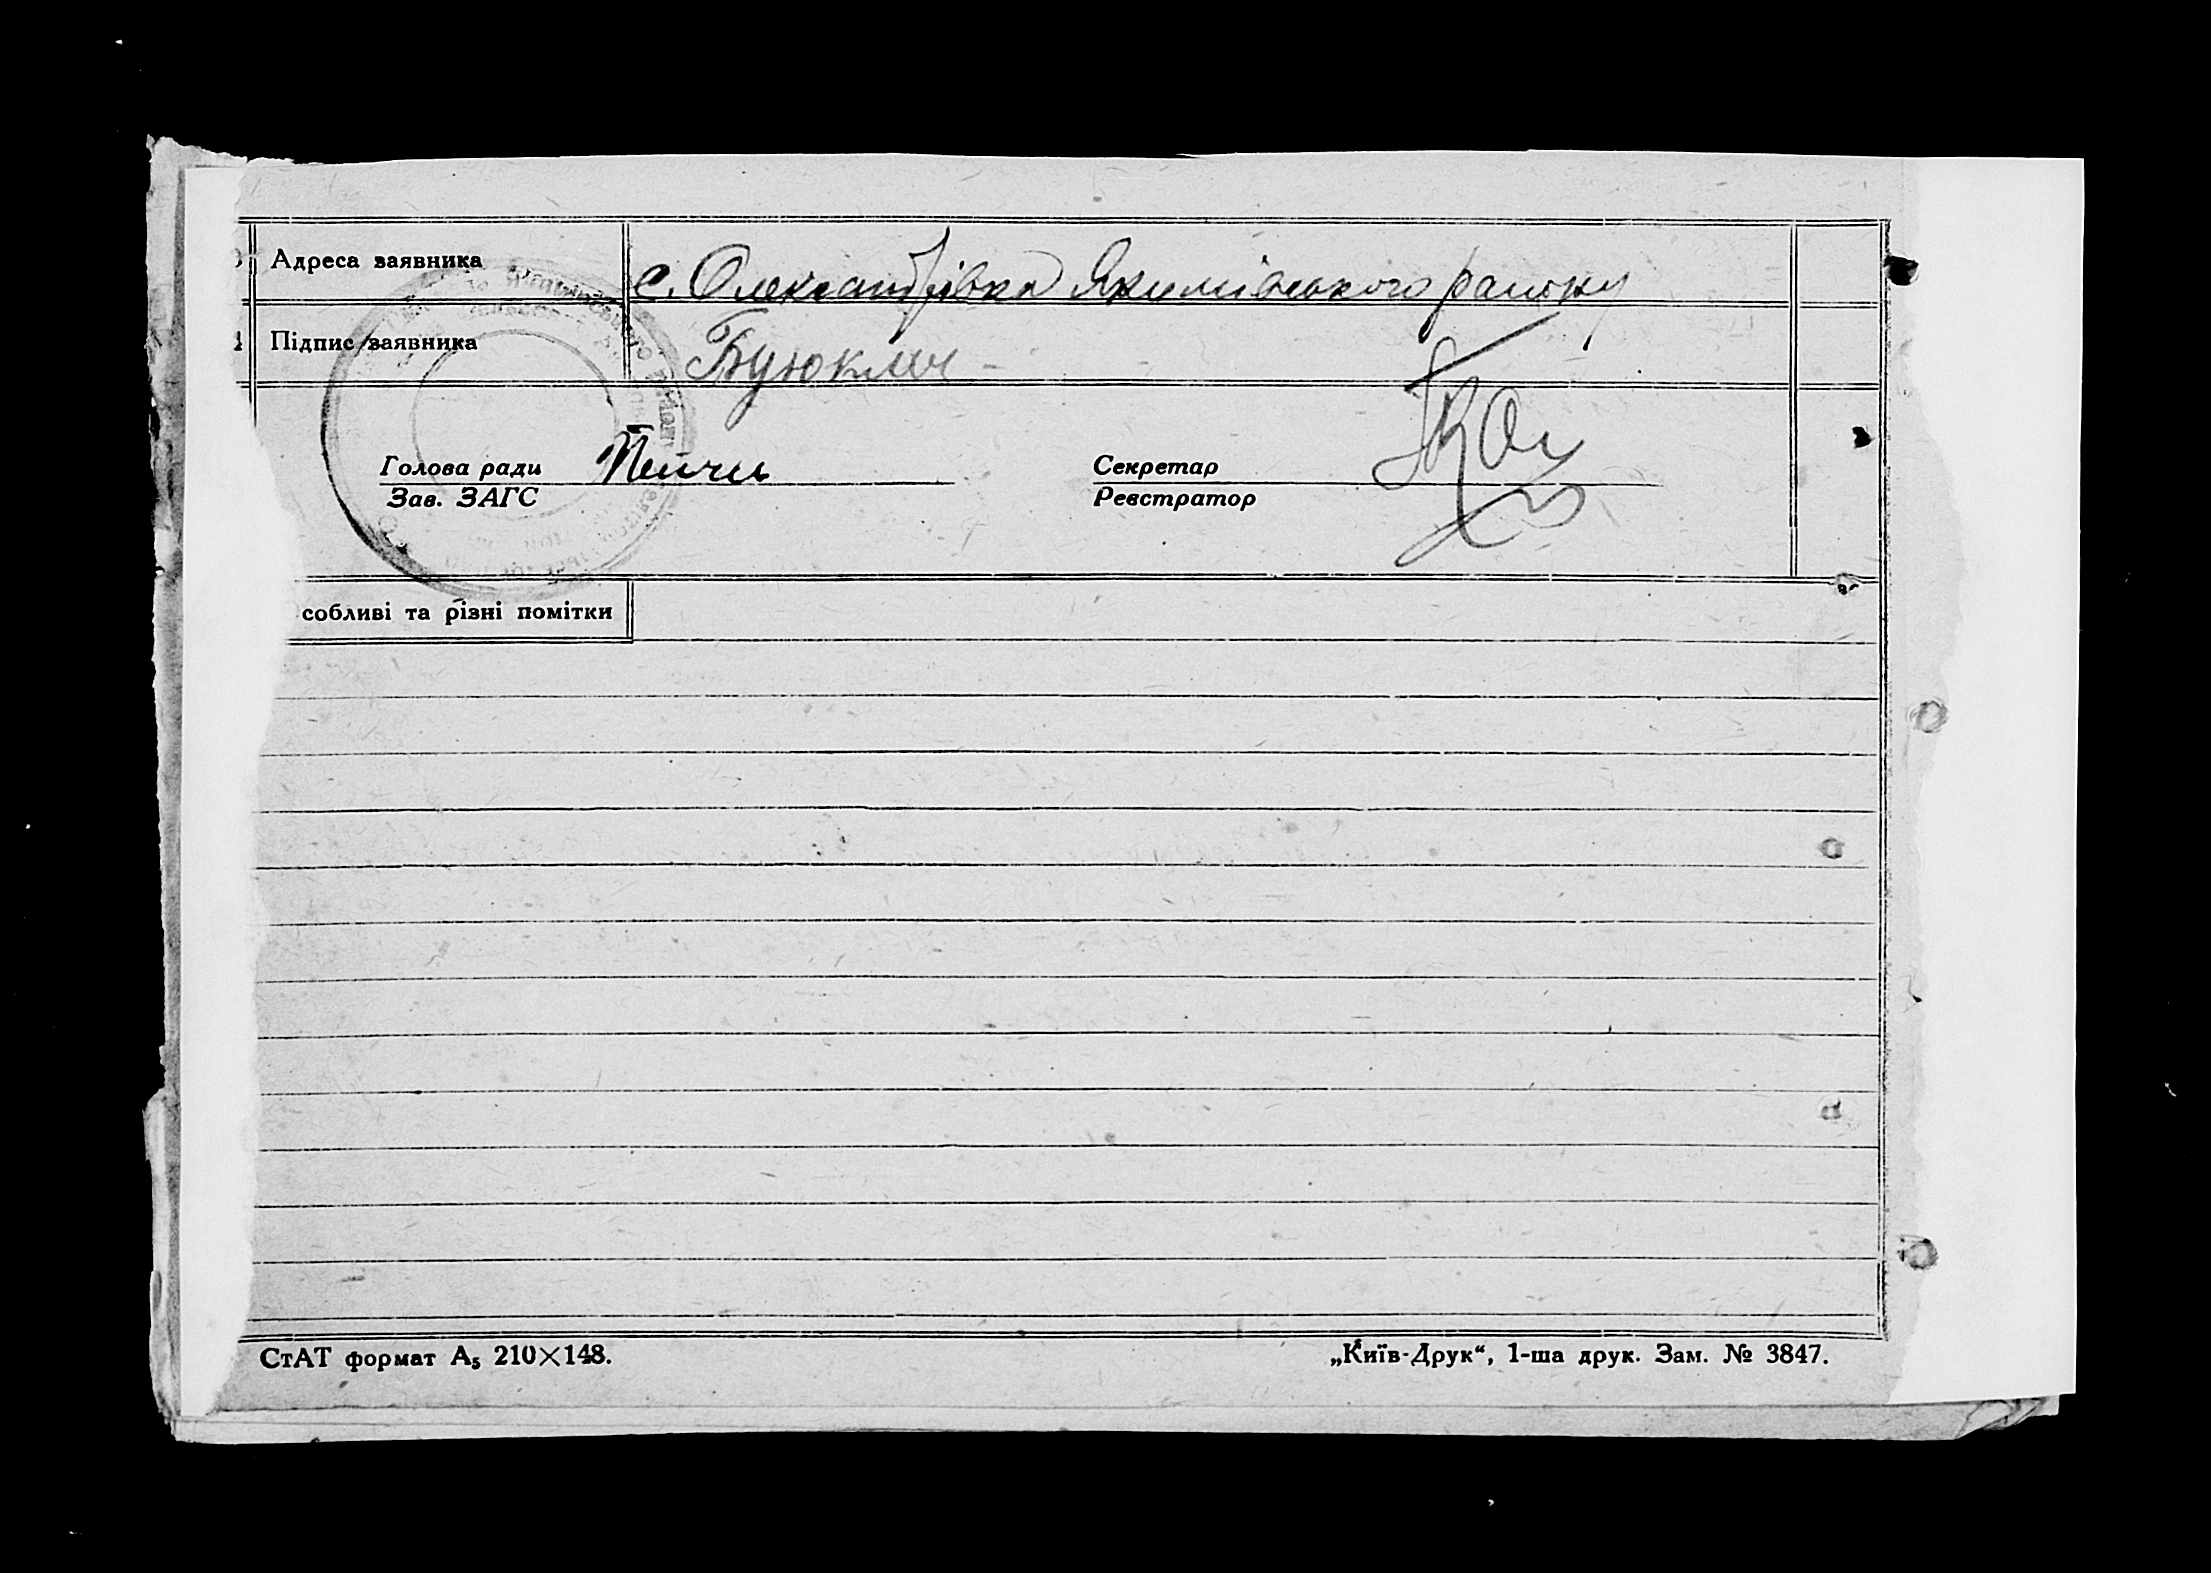 Адреса заявника с. Олександрівка Якимівського району
Підпис заявника Буюкли
Голова ради Пейчи Секретар
Зав. ЗАГС Реєстратор
собливі та різні помітки
СтАТ формат А₅ 210×148. „Київ-Друк“, 1-ша друк. Зам. № 3847.